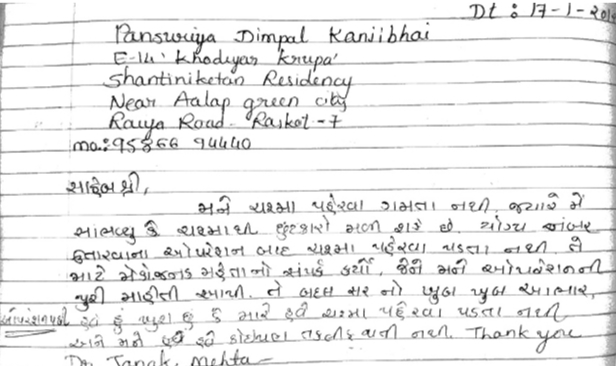 Dt : 17-1-20
Pansuriya Dimpal Kanjibhai
E-14 'Khodiyar Krupa'
Shantiniketan Residency
Near Aalap green city
Raiya Road - Rajkot - 7
mo.: 95866 94440
સાહેબશ્રી,
મને ચશ્મા પહેરવા ગમતા નથી. જ્યારે મેં
સાંભળ્યુ કે ચશ્માથી છુટકારો મળી શકે છે. ચશ્મા નંબર
ઉતારવાના ઓપરેશન બાદ ચશ્મા પહેરવા પડતા નથી. તે
માટે મહેતાનો સંપર્ક કર્યો, જેને મને ઓપરેશનની
પુરી માહીતી આપી. તે બદલ સર નો ખુબ ખુબ આભાર,
ઓપરેશન પછી હવે હું ખુશ છું કે મારે હવે ચશ્મા પહેરવા પડતા નથી
અને મને હવે કોઇપણ તકલીફ નથી. Thank you
Dr. Janak. Mehta